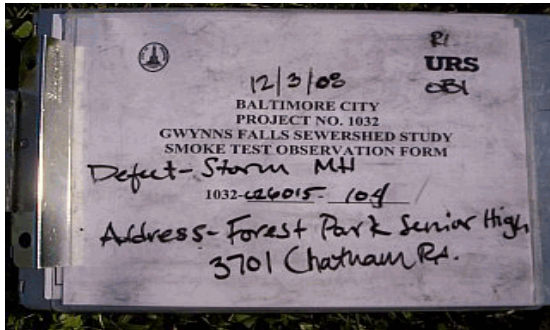 R1
URS
OB1
12/3/08
BALTIMORE CITY
PROJECT NO. 1032
GWYNNS FALLS SEWERSHED STUDY
SMOKE TEST OBSERVATION FORM
Defect- Storm MH
1032-C26015- 104
Address- Forest Park Senior High
3701 Chatham Rd.